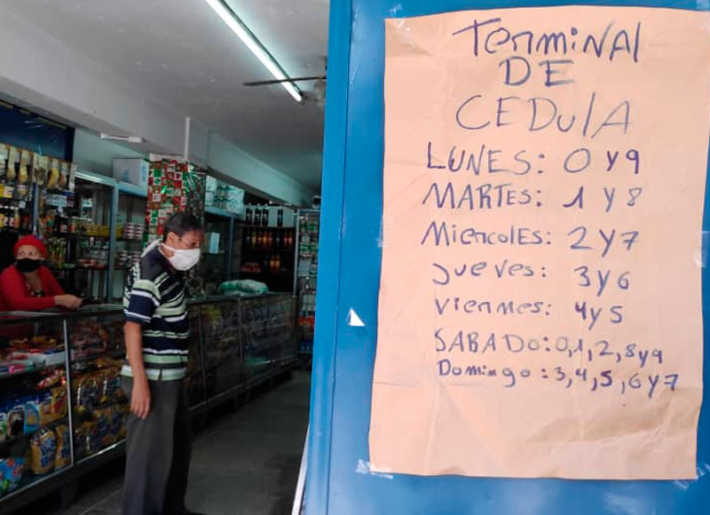 TerminAl
DE
CEDulA
LUNES: 0 y 9
MARTES: 1 y 8
MiercolEs: 2 y 7
Jueves: 3 y 6
Viernes: 4 y 5
SABADO: 0, 1, 2, 8 y 9
Domingo: 3, 4, 5, 6 y 7